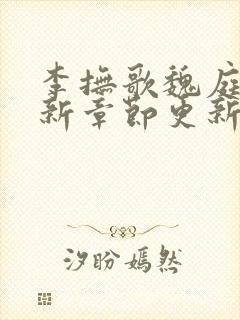 李抚歌魏庭
新章节更新
汐盼嫣然